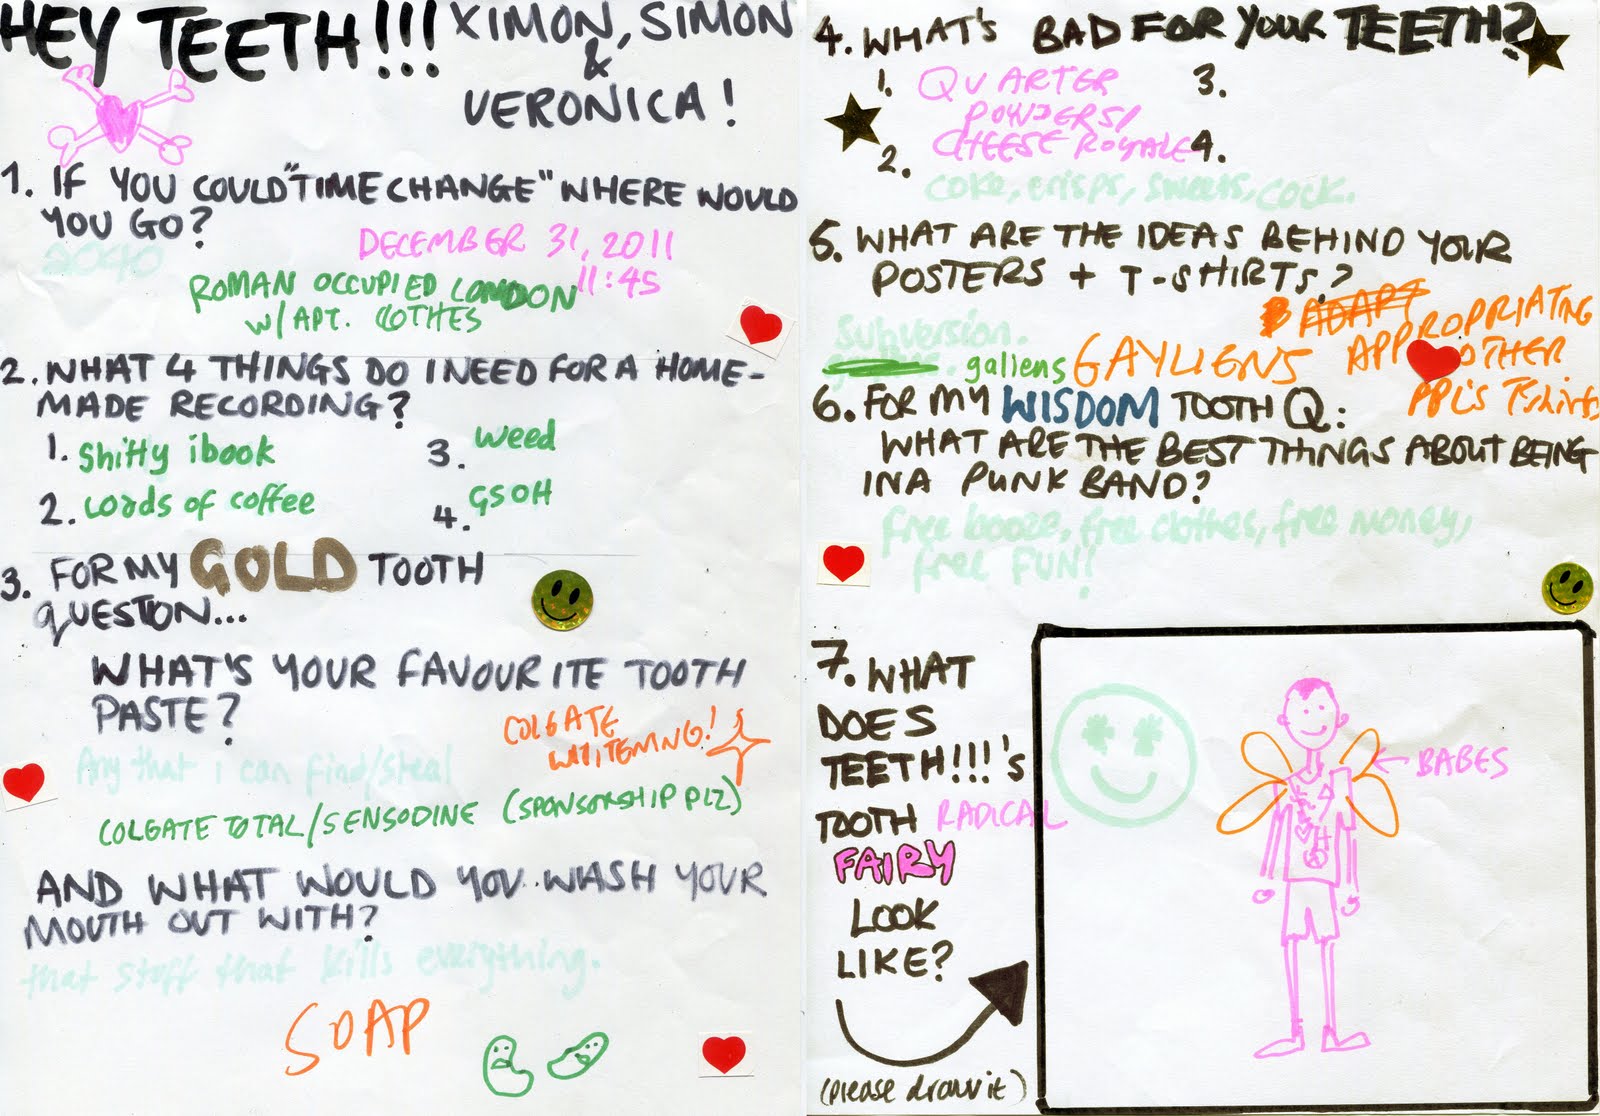 HEY TEETH!!!
XIMON, SIMON
&
VERONICA!
1. IF YOU COULD "TIME CHANGE" WHERE WOULD
YOU GO?
2040
DECEMBER 31, 2011
11:45
ROMAN OCCUPIED LONDON
W/ APT. CLOTHES
2. WHAT 4 THINGS DO I NEED FOR A HOME-
MADE RECORDING?
1. Shitty ibook
2. Loads of coffee
3. weed
4. GSOH
3. FOR MY GOLD TOOTH
QUESTION...
WHAT'S YOUR FAVOURITE TOOTH
PASTE?
COLGATE
WHITENING!
Any that i can find/steal
COLGATE TOTAL/SENSODINE (SPONSORSHIP PLZ)
AND WHAT WOULD YOU WASH YOUR
MOUTH OUT WITH?
that stuff that kills everything.
SOAP
4. WHAT'S BAD FOR YOUR TEETH?
1. QUARTER
POWDERS/
CHEESE ROYALE
2. coke, crisps, sweets, cock.
3.
4.
5. WHAT ARE THE IDEAS BEHIND YOUR
POSTERS + T-SHIRTS?
subversion.
galiens
GAYLIENS
ADAPT
APPROPRIATING
OTHER
PPL'S Tshirts
6. FOR MY WISDOM TOOTH Q:
WHAT ARE THE BEST THINGS ABOUT BEING
IN A PUNK BAND?
free booze, free clothes, free money,
free FUN!
7. WHAT
DOES
TEETH!!!'S
TOOTH RADICAL
FAIRY
LOOK
LIKE?
(please draw it)
BABES